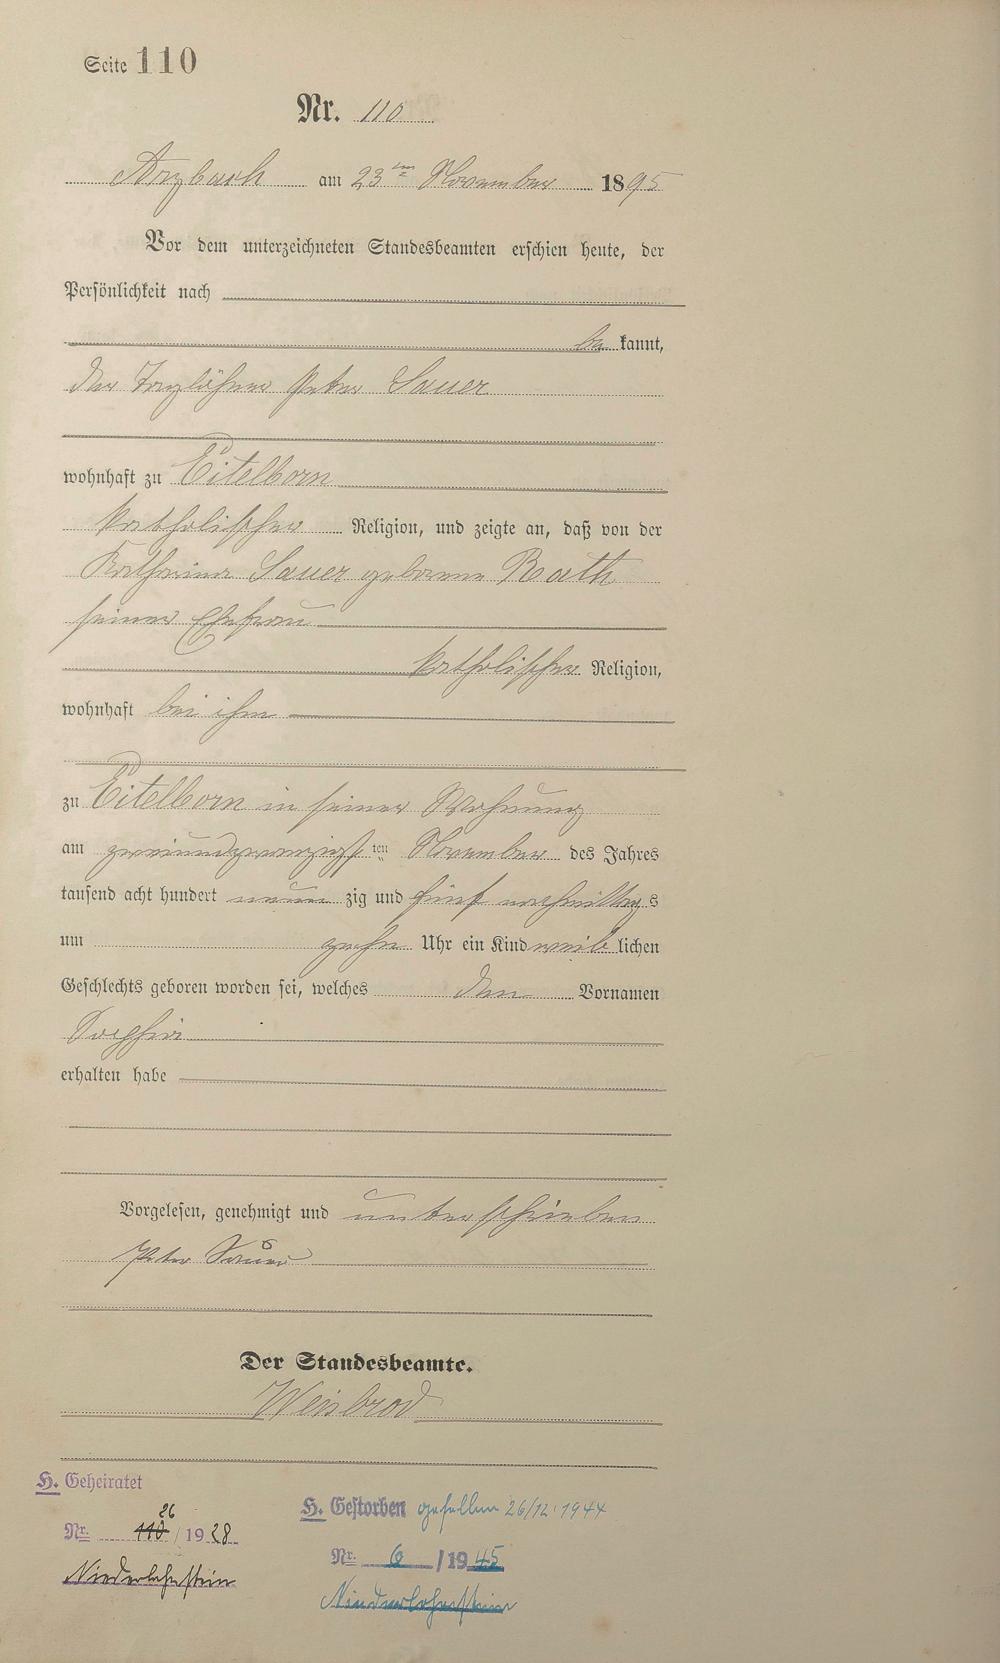 Seite 110
Nr. 110
Arzbach am 23ten November 1895
Vor dem unterzeichneten Standesbeamten erschien heute, der
Persönlichkeit nach
be kannt,
der Taglöhner Peter Sauer
wohnhaft zu Eitelborn
katholischer Religion, und zeigte an, daß von der
Katharina Sauer geborene Rath
seiner Ehefrau
katholischer Religion,
wohnhaft bei ihm
zu Eitelborn in seiner Wohnung
am zweiundzwanzigsten November des Jahres
tausend acht hundert neun zig und fünf nachmittags
um zehn Uhr ein Kind weiblichen
Geschlechts geboren worden sei, welches den Vornamen
Sophie
erhalten habe
Vorgelesen, genehmigt und unterschrieben
Peter Sauer
Der Standesbeamte.
Weisbrod
H. Geheiratet
26
Nr. 110 / 1928
Niederlahnstein
H. Gestorben gefallen 26/12.1944
Nr. 6 / 1945
Niederlahnstein